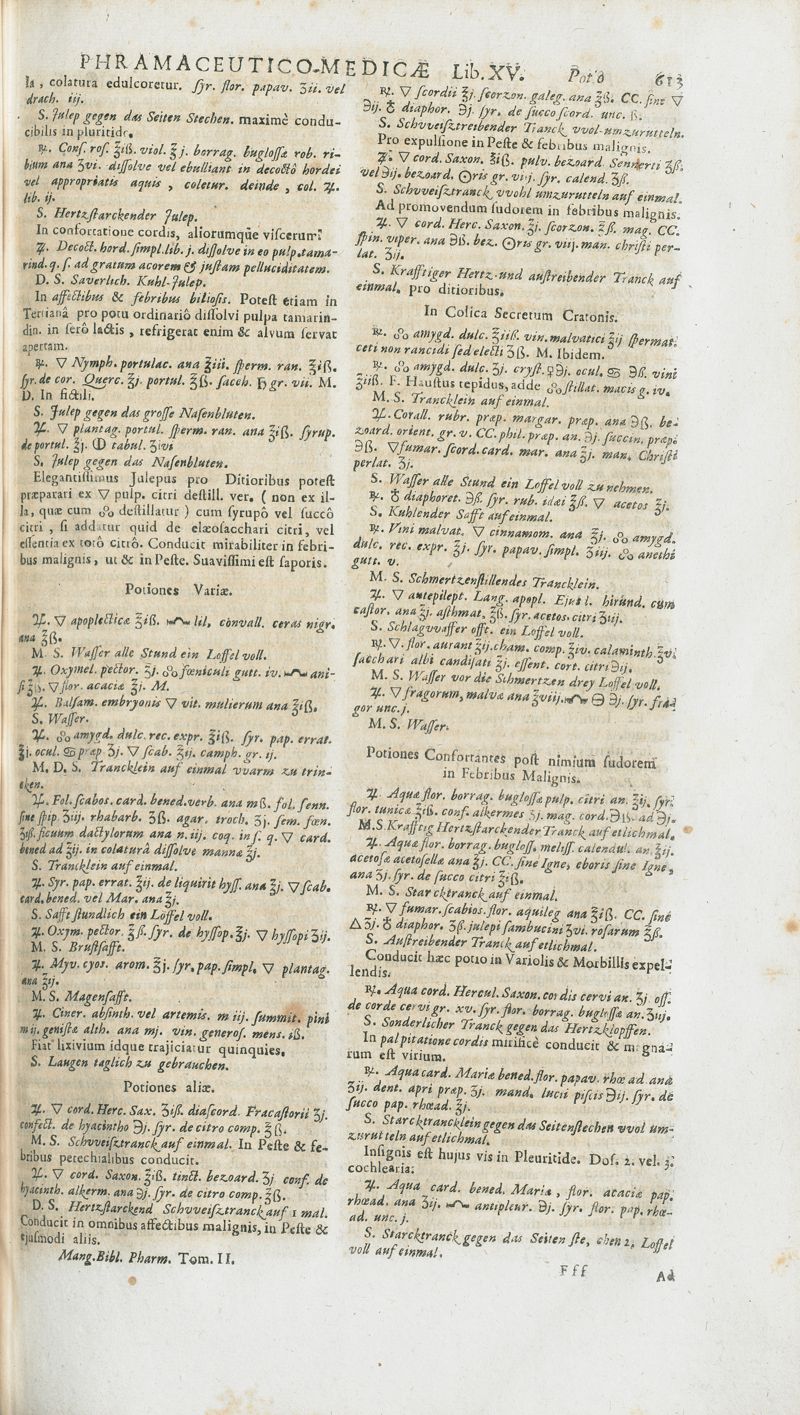 PHRAMACEUTICO-MEDICÆ Lib. XV. Potio 613
la, colatura edulcoretur. ſyr. flor. papav. ʒii. vel
drach. iij.
S. Julep gegen das Seiten Stechen. maximè condu-
cibilis in pluritide.
℞. Conſ. roſ. ℥iß. viol. ℥j. borrag. bugloſſæ rob. ri-
bium ana ʒvi. diſſolve vel ebulliant in decoctô hordei
vel appropriatis aquis, coletur. deinde, col. ℞.
lib. ij.
S. Hertzſtarckender Julep.
In confortatione cordis, aliorumque viſcerum:
℞. Decoct. hord. ſimpl. lib. j. diſſolve in eo pulp. tama-
rind. q. ſ. ad gratum acorem & juſtam pelluciditatem.
D. S. Saverlich. Kuhl-Julep.
In affectibus & febribus bilioſis. Poteſt etiam in
Tertianâ pro potu ordinariô diſſolvi pulpa tamarin-
din. in ſerô lactis, refrigerat enim & alvum ſervat
apertam.
℞. ▽ Nymph. portulac. ana ℥iii. ſperm. ran. ℥iß.
ſyr. de cor. Querc. ℥j. portul. ℥ß. ſacch. ♄ gr. vii. M.
D. In fictili.
S. Julep gegen das groſſe Naſenbluten.
℞. ▽ plantag. portul. ſperm. ran. ana ℥iß. ſyrup.
de portul. ℥j. ⦶ tabul. ʒivi
S. Julep gegen das Naſenbluten.
Elegantiſſimus Julepus pro Ditioribus poteſt
præparari ex ▽ pulp. citri deſtill. ver. (non ex il-
la, quæ cum oo deſtillatur) cum ſyrupô vel ſuccô
citri, ſi addatur quid de elæoſacchari citri, vel
eſſentia ex totô citrô. Conducit mirabiliter in febri-
bus malignis, ut & in Peſte. Suaviſſimi eſt ſaporis.
Potiones Variæ.
℞. ▽ apoplecticæ ℥iß. lil, convall. ceras nigr.
ana ℥ß.
M. S. Waſſer alle Stund ein Loffel voll.
℞. Oxymel. pector. ℥j. oo fœniculi gutt. iv. ani-
ſi ℥iß. ▽ flor. acaciæ ℥j. M.
℞. Balſam. embryonis ▽ vit. mulierum ana ℥iß.
S. Waſſer.
℞. oo amygd. dulc. rec. expr. ℥iß. ſyr. pap. errat.
℥j. ocul. ♋ præp ʒj. ▽ ſcab. ℥ij. camph. gr. ij.
M. D. S. Trancklein auf einmal vvarm zu trin-
cken.
℞. Fol. ſcabos. card. bened. verb. ana mß. fol. ſenn.
ſine ſtip. ʒiij. rhabarb. ʒß. agar. troch. ʒj. ſem. fœn.
ʒiß. ficuum dactylorum ana n. iij. coq. in ſ. q. ▽ card.
bened ad ℥ij. in colaturâ diſſolve mannæ ℥j.
S. Trancklein auf einmal.
℞. Syr. pap. errat. ℥ij. de liquirit hyſſ. ana ℥j. ▽ ſcab.
card. bened. vel Mar. ana ℥j.
S. Safft ſtundlich ein Löffel voll.
℞. Oxym. pector. ℥ß. ſyr. de hyſſop. ℥j. ▽ hyſſopi ʒij.
M. S. Bruſtſafft.
℞. Myv. cyos. arom. ℥j. ſyr. pap. ſimpl. ▽ plantag.
ana ℥ij.
M. S. Magenſafft.
℞. Ciner. abſinth. vel artemis. m iij. ſummit. pini
m ij. geniſtæ alth. ana mj. vin. generoſ. mens. iß.
Fiat lixivium idque trajiciatur quinquies.
S. Laugen taglich zu gebrauchen.
Potiones aliæ.
℞. ▽ cord. Herc. Sax. ℥iß. diaſcord. Fracaſtorii ℥j.
confect. de hyacintho ℈j. ſyr. de citro comp. ℥ß.
M. S. Schvveiſztranck auf einmal. In Peſte & fe-
bribus petechialibus conducit.
℞. ▽ cord. Saxon. ℥iß. tinct. bezoard. ʒj conf. de
hyacinth. alkerm. ana ℈j. ſyr. de citro comp. ℥ß.
D. S. Hertzſtarckend Schvveiſztranck auf 1 mal.
Conducit in omnibus affectibus malignis, in Peſte &
ejuſmodi aliis.
Mang. Bibl. Pharm. Tom. II.
℞. ▽ ſcordii ℥j. ſcorzon. galeg. ana ℥ß. CC. ſine ▽
℈ij. ♁ diaphor. ℈j. ſyr. de ſucco ſcord. unc. ß.
S. Schvveiſztreibender Tranck vvol umzurutteln.
Pro expulſione in Peſte & febribus malignis.
℞. ▽ cord. Saxon. ℥iß. pulv. bezoard Sennerti ʒß.
vel ℈ij. bezoard. ☉ris gr. viij. ſyr. calend. ℥ß.
S. Schvveiſztranck vvohl umzurutteln auf einmal.
Ad promovendum ſudorem in febribus malignis.
℞. ▽ cord. Herc. Saxon. ℥j. ſcorzon. ℥ß. mag. CC.
ſpin. viper. ana ℈ß. bez. ☉ris gr. viij. man. chriſti per-
lat. ʒij.
S. Krafftiger Hertz-und auſtreibender Tranck auf
einmal. pro ditioribus.
In Colica Secretum Cratonis.
℞. oo amygd. dulc. ℥iiß. vin. malvatici ℥ij ſpermat.
ceti non rancidi ſed electi ʒß. M. Ibidem.
℞. oo amygd. dulc. ℥j. cryſt. ♀ ℈j. ocul. ♋ ℈ß. vini
℥iiß. F. Hauſtus tepidus, adde oo ſtillat. macis g. iv.
M. S. Trancklein auf einmal.
℞. Corall. rubr. præp. margar. præp. ana ℈ß. be-
zoard. orient. gr. v. CC. phil. præp. an. ℈j. ſuccin. præp.
℈ß. ▽ fumar. ſcord. card. mar. ana ℥j. man. Chriſti
perlat. ʒj.
S. Waſſer alle Stund ein Loffel voll zu nehmen.
℞. ♁ diaphoret. ℈ß. ſyr. rub. idæi ℥ß. ▽ acetos ℥j.
S. Kuhlender Safft auf einmal.
℞. Vini malvat. ▽ cinnamom. ana ℥j. oo amygd.
dulc. rec. expr. ℥j. ſyr. papav. ſimpl. ʒiij. oo anethi
gutt. v.
M. S. Schmertzenſtillendes Trancklein.
℞. ▽ antepilept. Lang. apopl. Ejuſ l. hirund. cum
caſtor. ana ℥j. aſthmat. ℥ß. ſyr. acetos. citri ʒiij.
S. Schlagvvaſſer offt. ein Loffel voll.
℞. ▽. flor. aurant ℥ij. cham. comp. ℥iv. calaminth. ℥vi
ſacchari albi candiſati ℥j. eſſent. cort. citri ℈ij.
M. S. Waſſer vor die Schmertzen drey Loffel voll.
℞. ▽ fragorum, malvæ ana ℥viij. ⊖ ℈j. ſyr. fra-
gor unc. j.
M. S. Waſſer.
Potiones Confortantes poſt nimium ſudorem
in Febribus Malignis.
℞. Aquæ flor. borrag. bugloſſæ pulp. citri an. ℥ij. ſyr.
flor. tunicæ ℥ß. conf. alkermes ʒj. mag. cord. ℈iß. ad ℈j.
M. S. Krafftig Hertzſtarckender Tranck auf etlichmal.
℞. Aquæ flor. borrag. bugloſſ. meliſſ. calendul. an. ℥ij.
acetoſæ acetoſellæ ana ℥j. CC. ſine Igne, eboris ſine Igne,
ana ʒj. ſyr. de ſucco citri ℥iß.
M. S. Starcktranck auf einmal.
℞. ▽ fumar. ſcabios. flor. aquileg ana ℥iß. CC. ſine
△ ʒj. ♁ diaphor. ʒß. julepi ſambucini ʒvi. roſarum ℥ß.
S. Auſtreibender Tranck auf etlichmal.
Conducit hæc potio in Variolis & Morbillis expel-
lendis.
℞. Aqua cord. Hercul. Saxon. cordis cervi an. ℥j oſſ.
de corde cervi gr. xv. ſyr. flor. borrag. bugloſſæ an. ʒiij.
S. Sonderlicher Tranck gegen das Hertzklopffen.
In palpitatione cordis mirificè conducit & magna-
rum eſt virium.
℞. Aqua card. Mariæ bened. flor. papav. rhœad ana
ʒij. dent. apri præp. ʒj. mand. lucii piſcis ℈ij. ſyr. de
ſucco pap. rhœad. ℥j.
S. Starcktrancklein gegen das Seitenſtechen vvol um-
zurutteln auf etlichmal.
Inſignis eſt hujus vis in Pleuritide. Doſ. 2. vel. 3.
cochlearia:
℞. Aqua card. bened. Mariæ, flor. acaciæ pap.
rhœad. ana ℥ij. antipleur. ℈j. ſyr. flor. pap. rhœ-
ad. unc. j.
S. Starcktranck gegen das Seiten ſte, chen 2. Loffel
voll auf einmal.
Fff
Ad